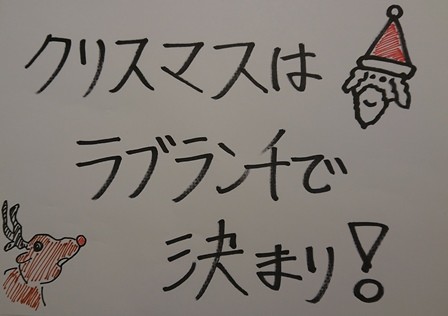 クリスマスは
ラブランチで
決まり!